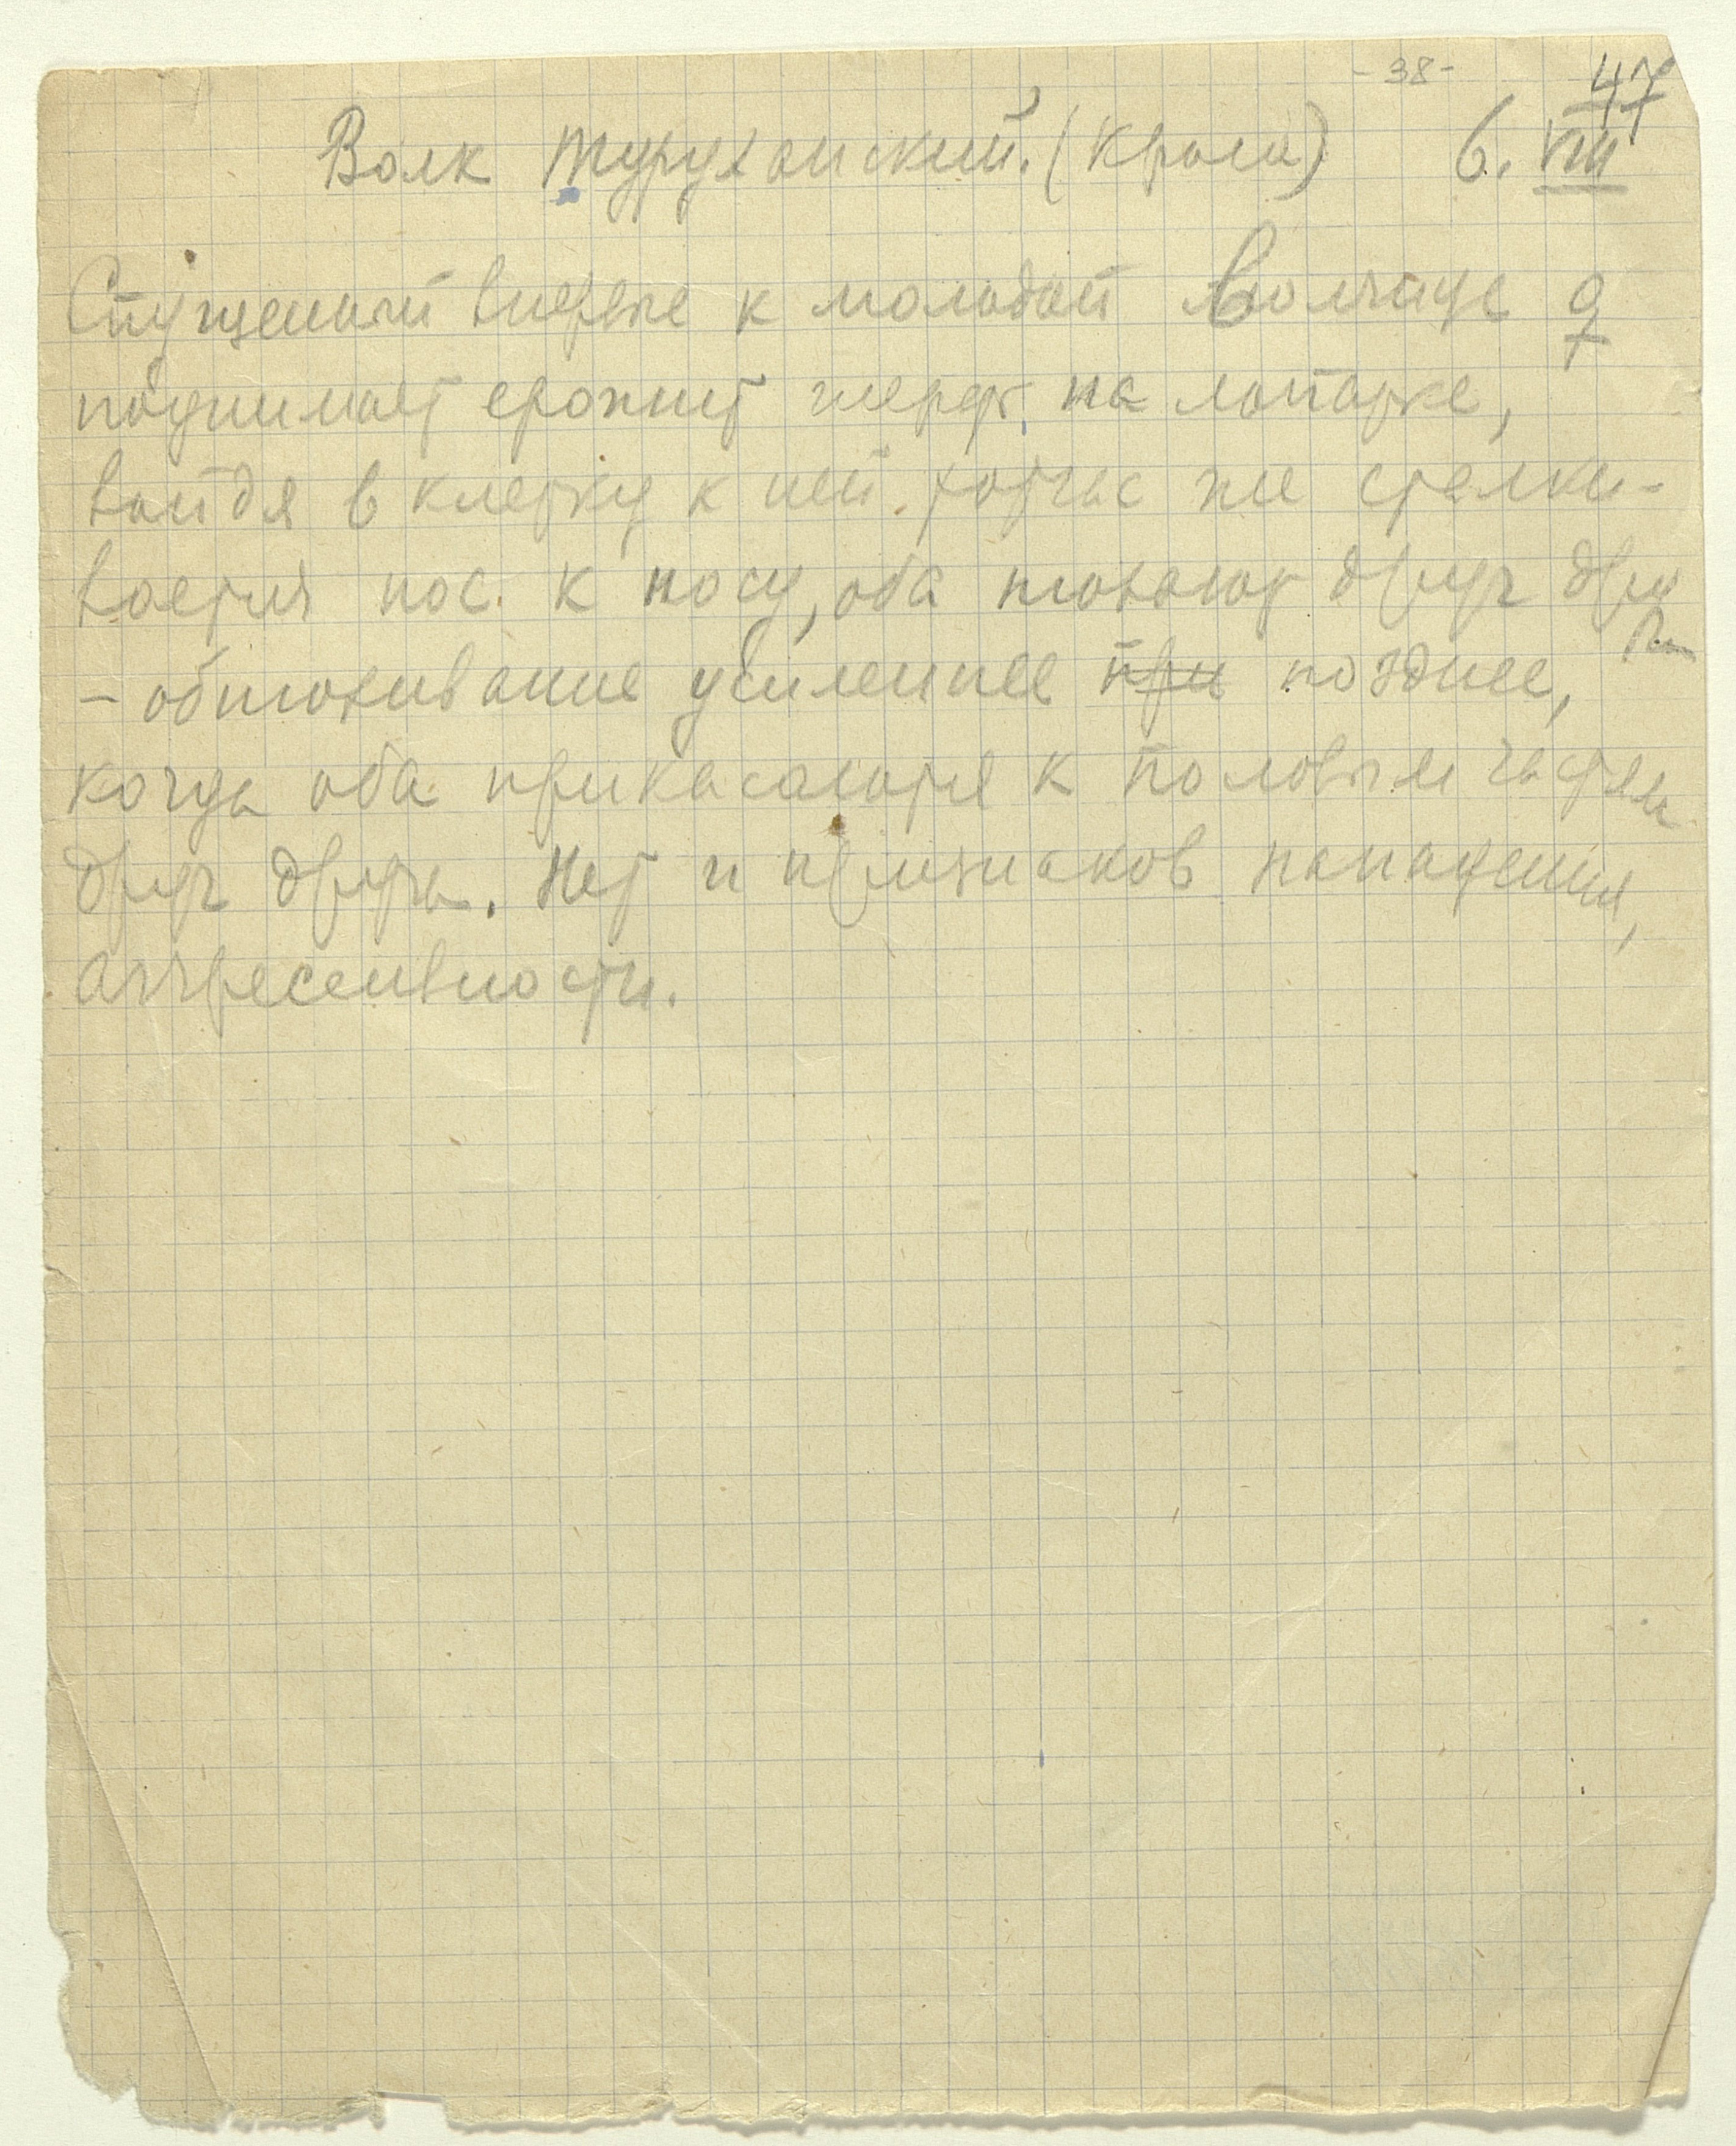 -38-
47
Волк Туруханский. (Крола) 6. VIII
Спущенный впервые к молодой волчице ♀
поднимает ерошит шерсть на лопатке,
войдя в клетку к ней тотчас же сталки-
вается нос к носу, оба нюхают друг дру
га
- обнюхивание усиленнее при позднее,
когда оба прикасаются к половым частям
друг друга. Нет и признаков нападения,
аггрессивности.